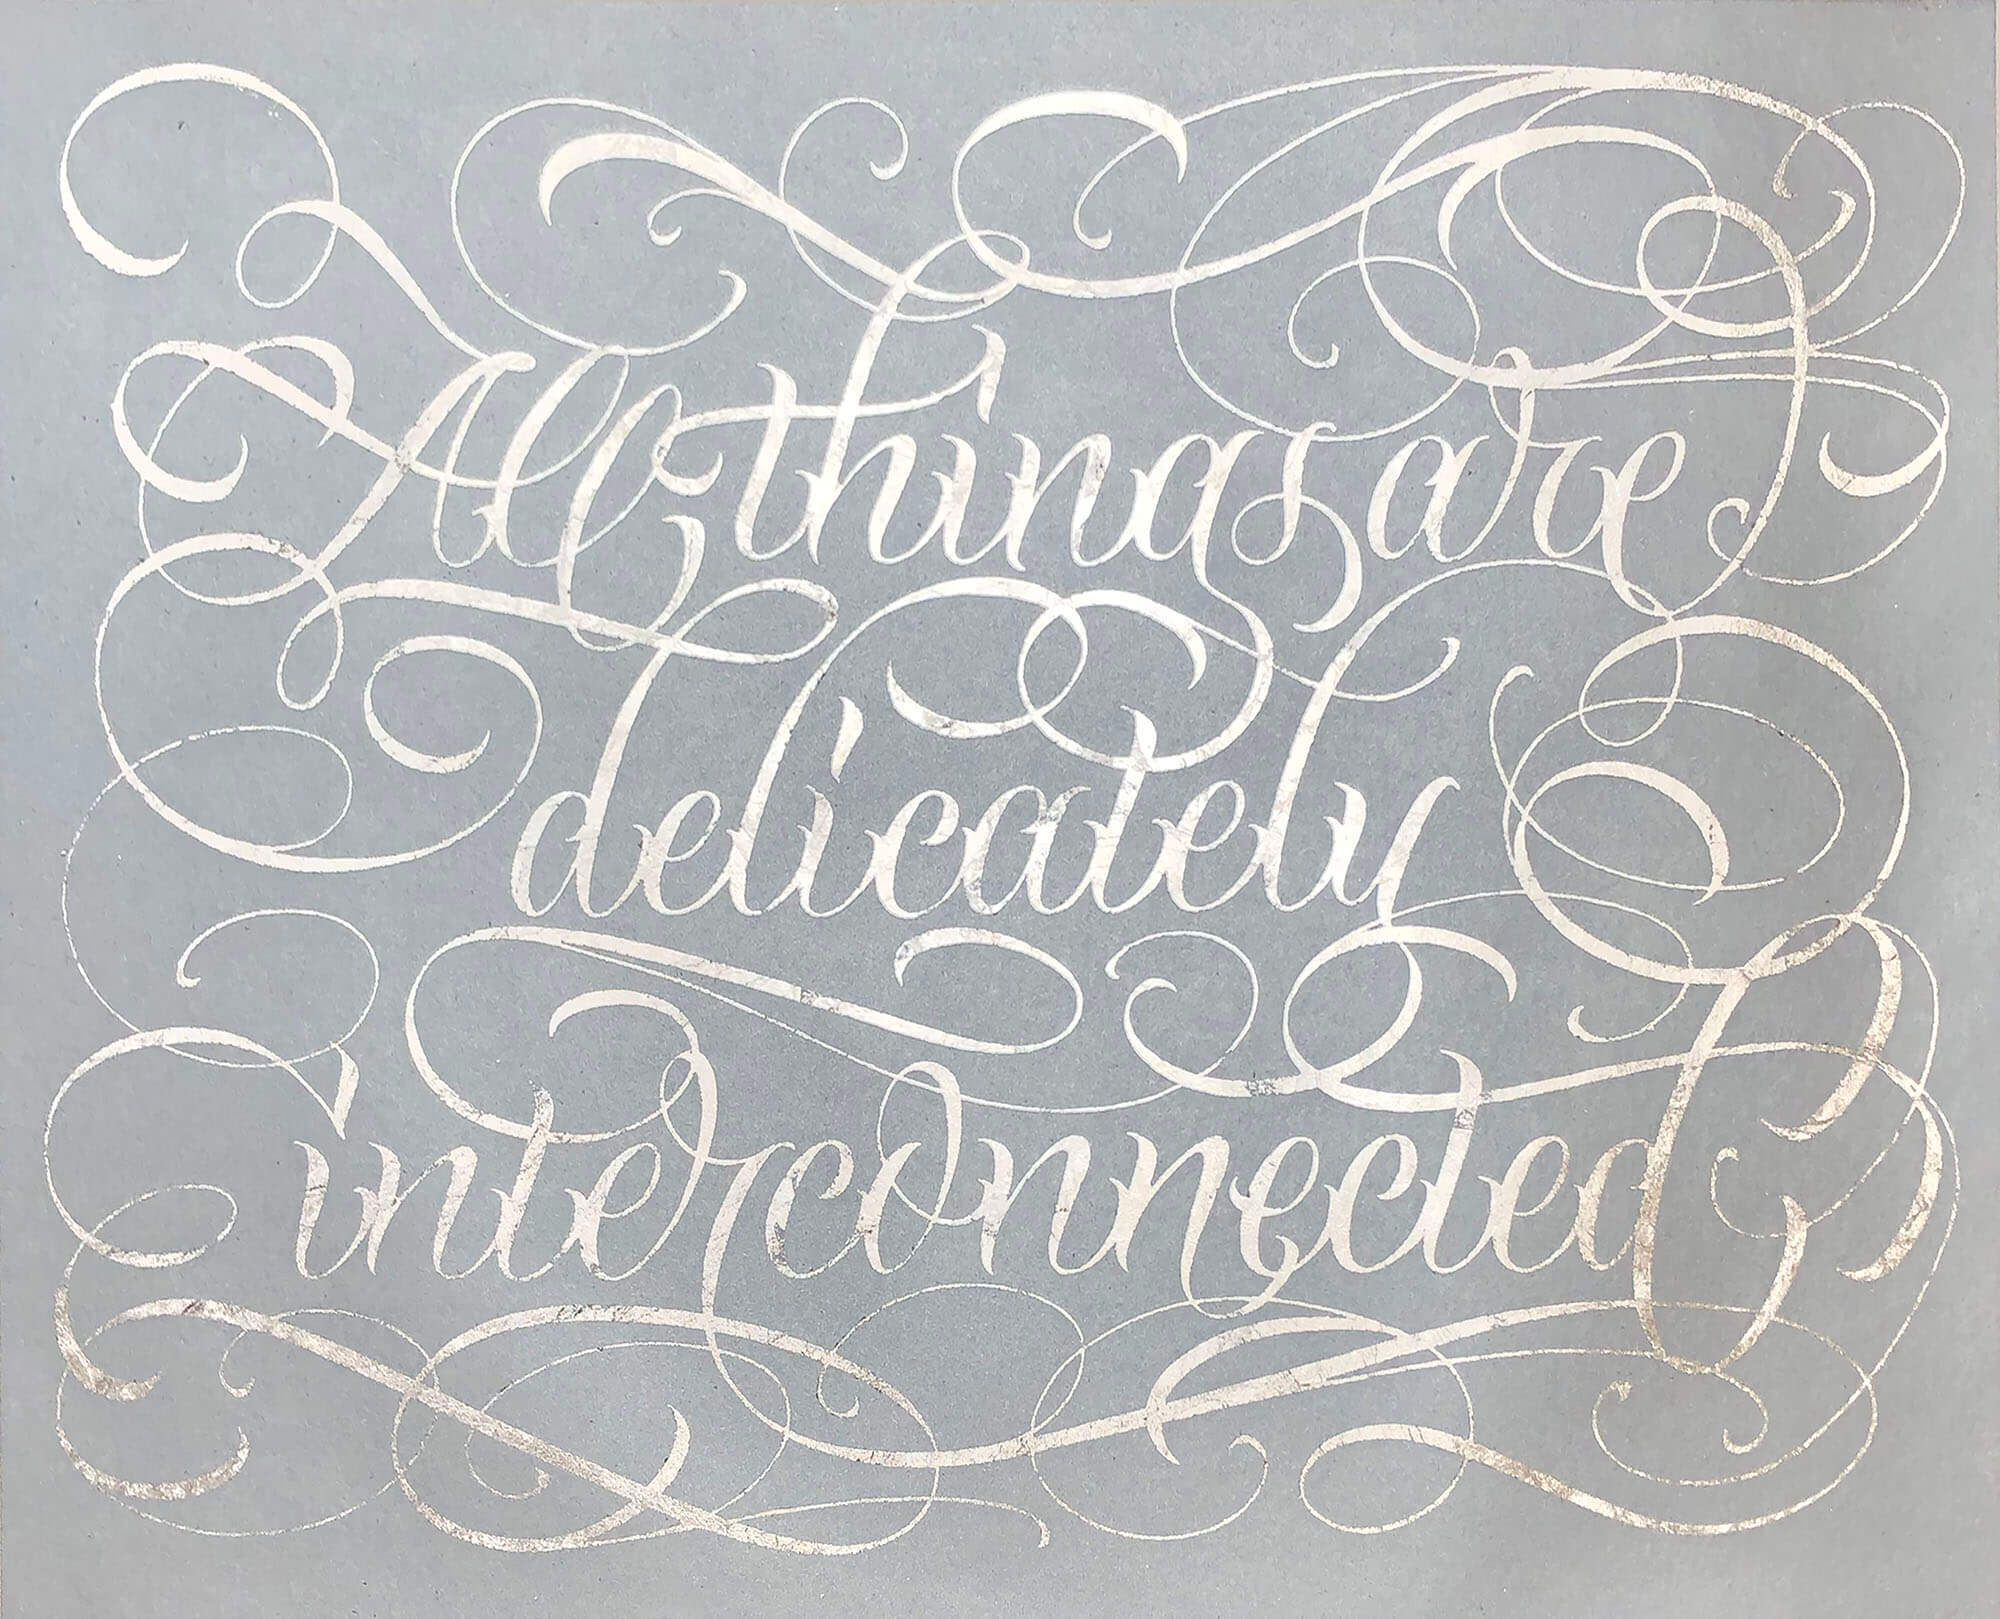 All things are
delicately
interconnected